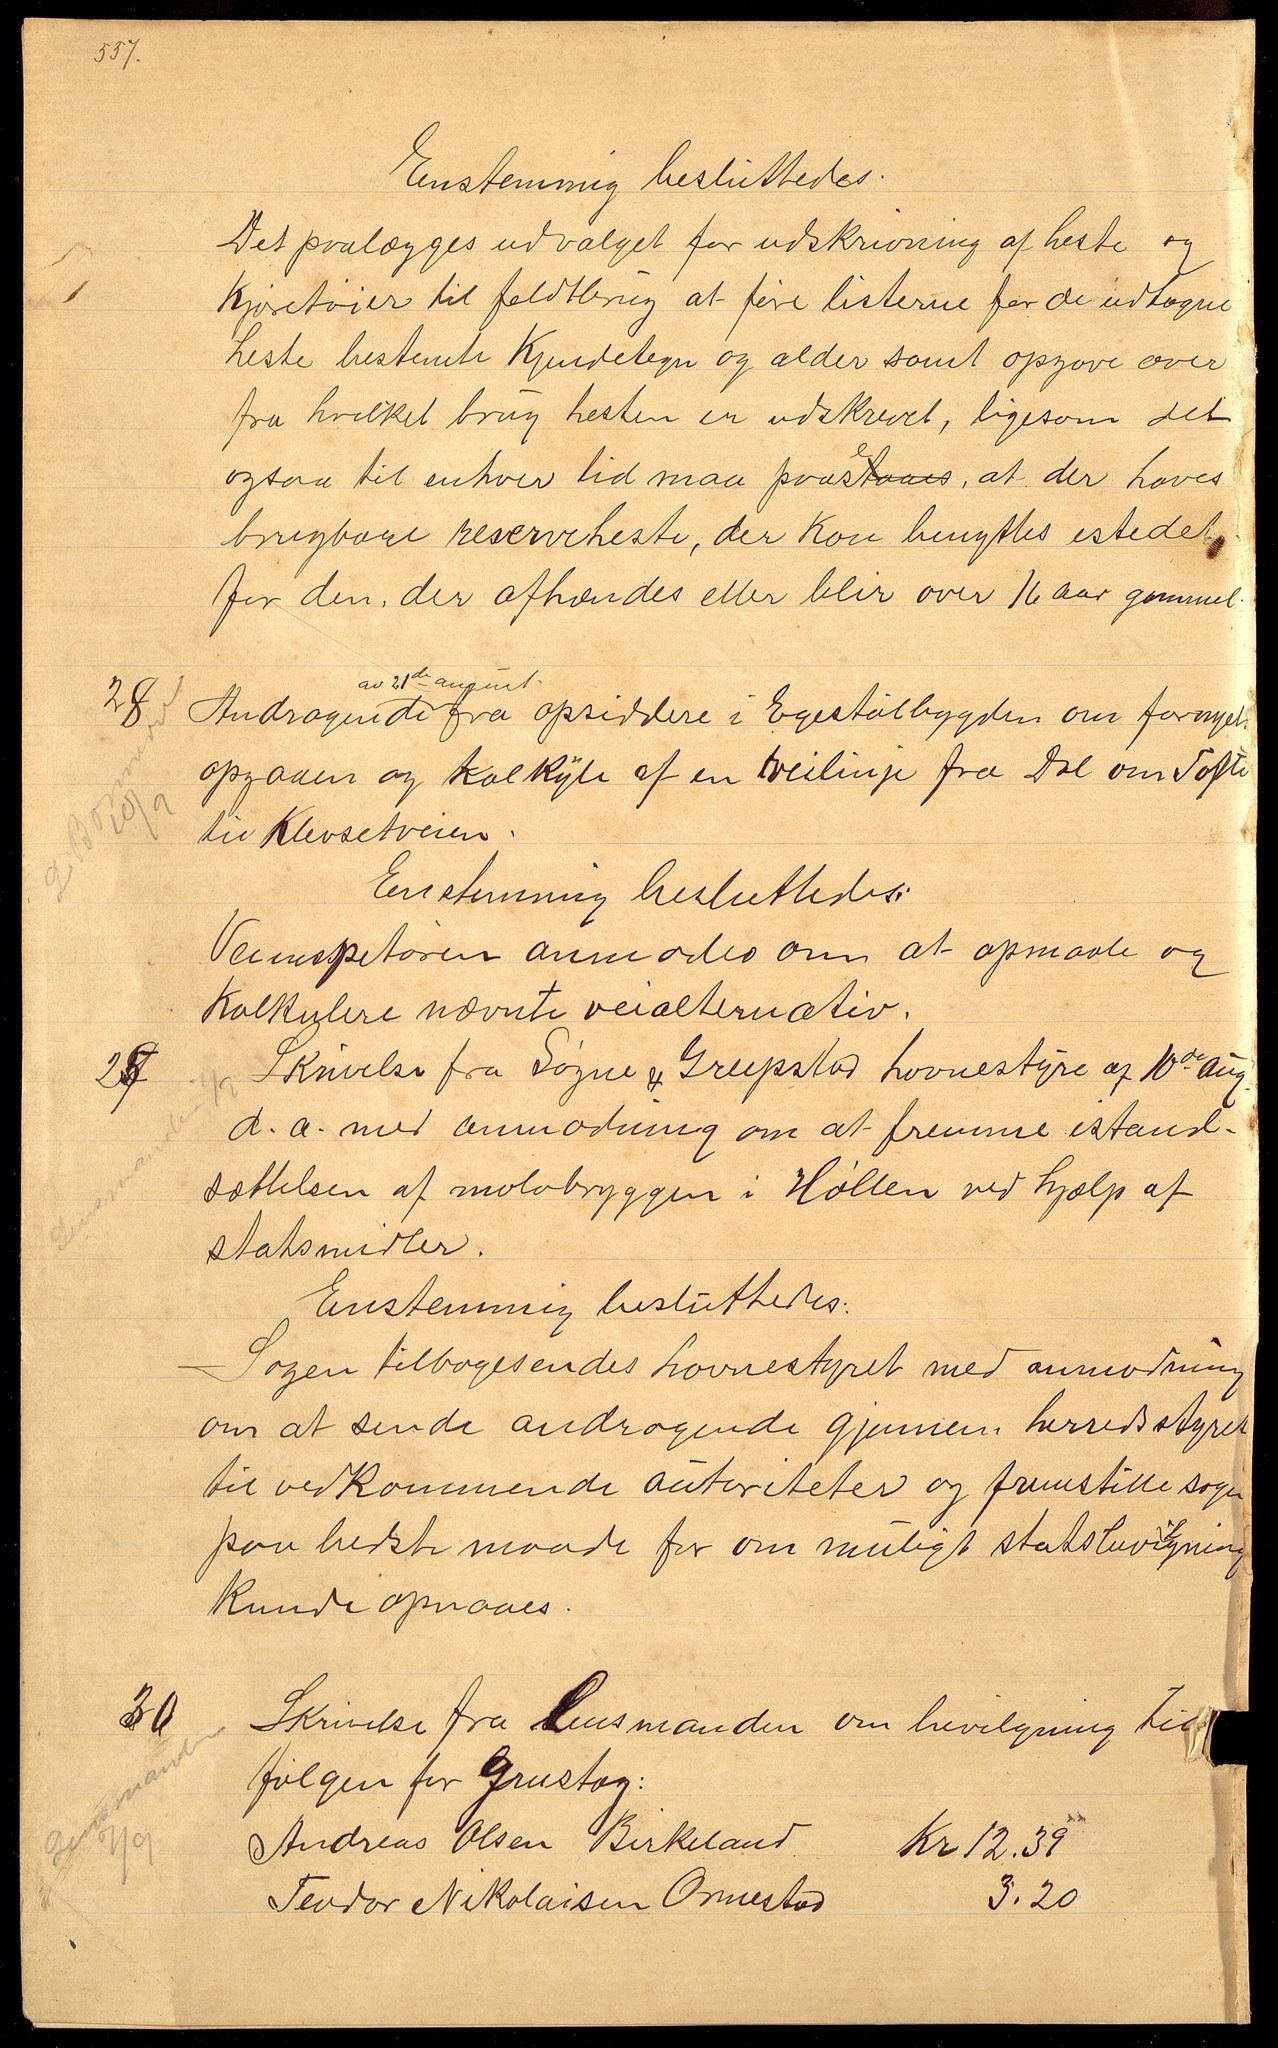 557.
Enstemmig besluttedes.
Det paalægges udvalget for udskrivning af heste og
Kjøretøier til feldtbrug at føre listerne for de udtagne
heste bestemte Kjendetegn og alder samt opgave over
fra hvilket brug hesten er udskrevet, ligesom det
ogsaa til enhver tid maa paasees, at der haves
brugbare reserveheste, der Kan benyttes istedet
for den, der afhændes eller blir over 16 aar gammel.
av 21de august.
28 Andragende fra opsiddere i Egestølbygden om fornyet
opgaaen og kalkyle af en veilinje fra Dal om Tofte
til Klevsetveien.
Enstemmig besluttedes:
Veiinspetøren anmodes om at opmaale og
Kalkulere nævnte veialternativ.
29 Skrivelse fra Søgne & Greepstad havnestyre af 10de aug.
d. a. med anmodning om at fremme istand-
sættelsen af molobryggen i Høllen ved hjælp af
statsmidler.
Enstemmig besluttedes:
Sagen tilbagesendes havnestyret med anmodning
om at sende andragende gjennem herredsstyret
til vedkommende autoriteter og fremstille sagen
paa bedste maade for om muligt statsbevilgning
Kunde opnaaes.
30 Skrivelse fra Lensmanden om bevilgning til
følgen for Grustag:
Andreas Olsen Birkeland Kr 12.39
Teodor Nikolaisen Ormestad 3.20
Lensmanden 7/9
Lensmanden
7/9
10/9